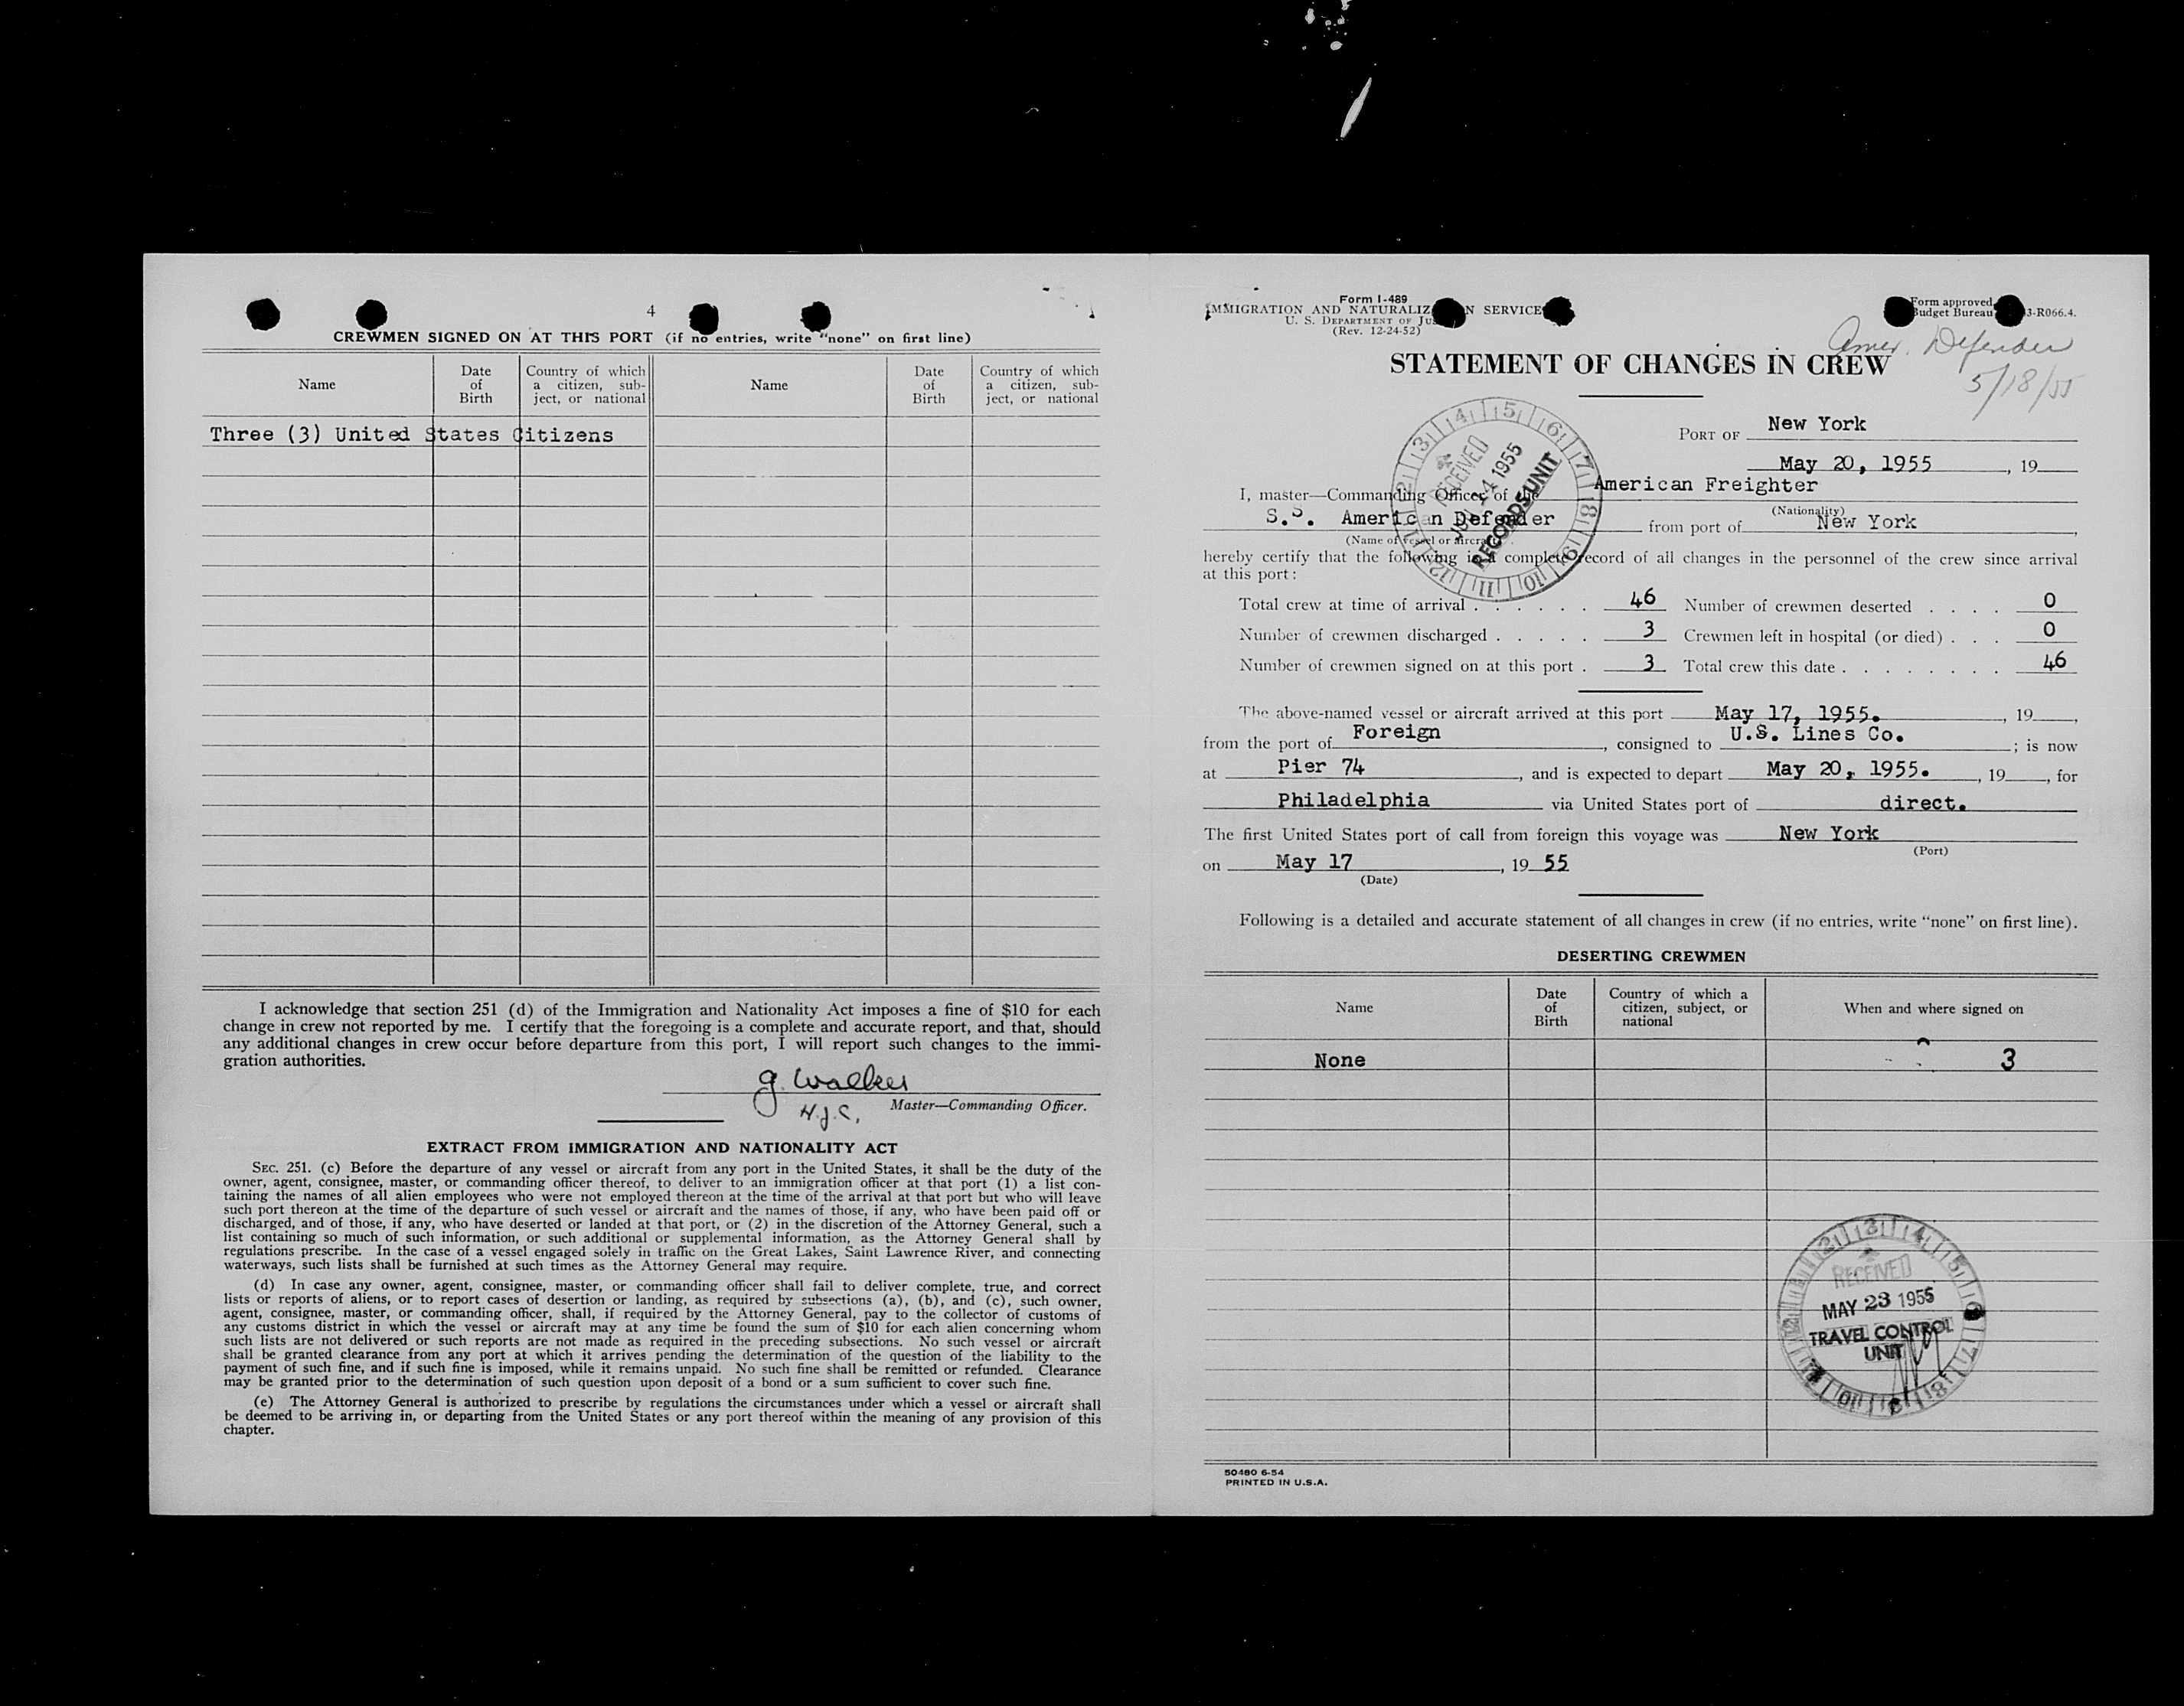 4
CREWMEN SIGNED ON AT THIS PORT (if no entries, write "none" on first line)
Name
Date of Birth
Country of which a citizen, sub-ject, or national
Name
Date of Birth
Country of which a citizen, sub-ject, or national
Three (3) United States Citizens
I acknowledge that section 251 (d) of the Immigration and Nationality Act imposes a fine of $10 for each
change in crew not reported by me. I certify that the foregoing is a complete and accurate report, and that, should
any additional changes in crew occur before departure from this port, I will report such changes to the immi-
gration authorities.
G. Walker
N.J.C. Master—Commanding Officer.
EXTRACT FROM IMMIGRATION AND NATIONALITY ACT
SEC. 251. (c) Before the departure of any vessel or aircraft from any port in the United States, it shall be the duty of the
owner, agent, consignee, master, or commanding officer thereof, to deliver to an immigration officer at that port (1) a list con-
taining the names of all alien employees who were not employed thereon at the time of the arrival at that port but who will leave
such port thereon at the time of the departure of such vessel or aircraft and the names of those, if any, who have been paid off or
discharged, and of those, if any, who have deserted or landed at that port, or (2) in the discretion of the Attorney General, such a
list containing so much of such information, or such additional or supplemental information, as the Attorney General shall by
regulations prescribe. In the case of a vessel engaged solely in traffic on the Great Lakes, Saint Lawrence River, and connecting
waterways, such lists shall be furnished at such times as the Attorney General may require.
(d) In case any owner, agent, consignee, master, or commanding officer shall fail to deliver complete, true, and correct
lists or reports of aliens, or to report cases of desertion or landing, as required by subsections (a), (b), and (c), such owner,
agent, consignee, master, or commanding officer, shall, if required by the Attorney General, pay to the collector of customs of
any customs district in which the vessel or aircraft may at any time be found the sum of $10 for each alien concerning whom
such lists are not delivered or such reports are not made as required in the preceding subsections. No such vessel or aircraft
shall be granted clearance from any port at which it arrives pending the determination of the question of the liability to the
payment of such fine, and if such fine is imposed, while it remains unpaid. No such fine shall be remitted or refunded. Clearance
may be granted prior to the determination of such question upon deposit of a bond or a sum sufficient to cover such fine.
(e) The Attorney General is authorized to prescribe by regulations the circumstances under which a vessel or aircraft shall
be deemed to be arriving in, or departing from the United States or any port thereof within the meaning of any provision of this
chapter.
Form I-489
IMMIGRATION AND NATURALIZ N SERVICE
U. S. DEPARTMENT OF JUS
(Rev. 12-24-52)
Form approved
Budget Bureau 3-R066.4.
Amer. Defender
5/18/55
STATEMENT OF CHANGES IN CREW
PORT OF New York
May 20, 1955, 19
RECEIVED
1955
RECORDS UNIT
I, master—Commanding Officer of the American Freighter
(Nationality)
S.S. American Defender from port of New York,
(Name of vessel or aircraft)
hereby certify that the following is a complete record of all changes in the personnel of the crew since arrival
at this port:
Total crew at time of arrival . . . . . . 46 Number of crewmen deserted . . . . 0
Number of crewmen discharged . . . . . 3 Crewmen left in hospital (or died) . . . 0
Number of crewmen signed on at this port . 3 Total crew this date . . . . . . . . 46
The above-named vessel or aircraft arrived at this port May 17, 1955., 19,
from the port of Foreign, consigned to U.S. Lines Co.; is now
at Pier 74, and is expected to depart May 20, 1955., 19, for
Philadelphia via United States port of direct.
The first United States port of call from foreign this voyage was New York
(Port)
on May 17, 19 55
(Date)
Following is a detailed and accurate statement of all changes in crew (if no entries, write "none" on first line).
DESERTING CREWMEN
Name
Date of Birth
Country of which a citizen, subject, or national
When and where signed on
None 3
RECEIVED
MAY 23 1955
TRAVEL CONTROL
UNIT
50480 6-54
PRINTED IN U.S.A.